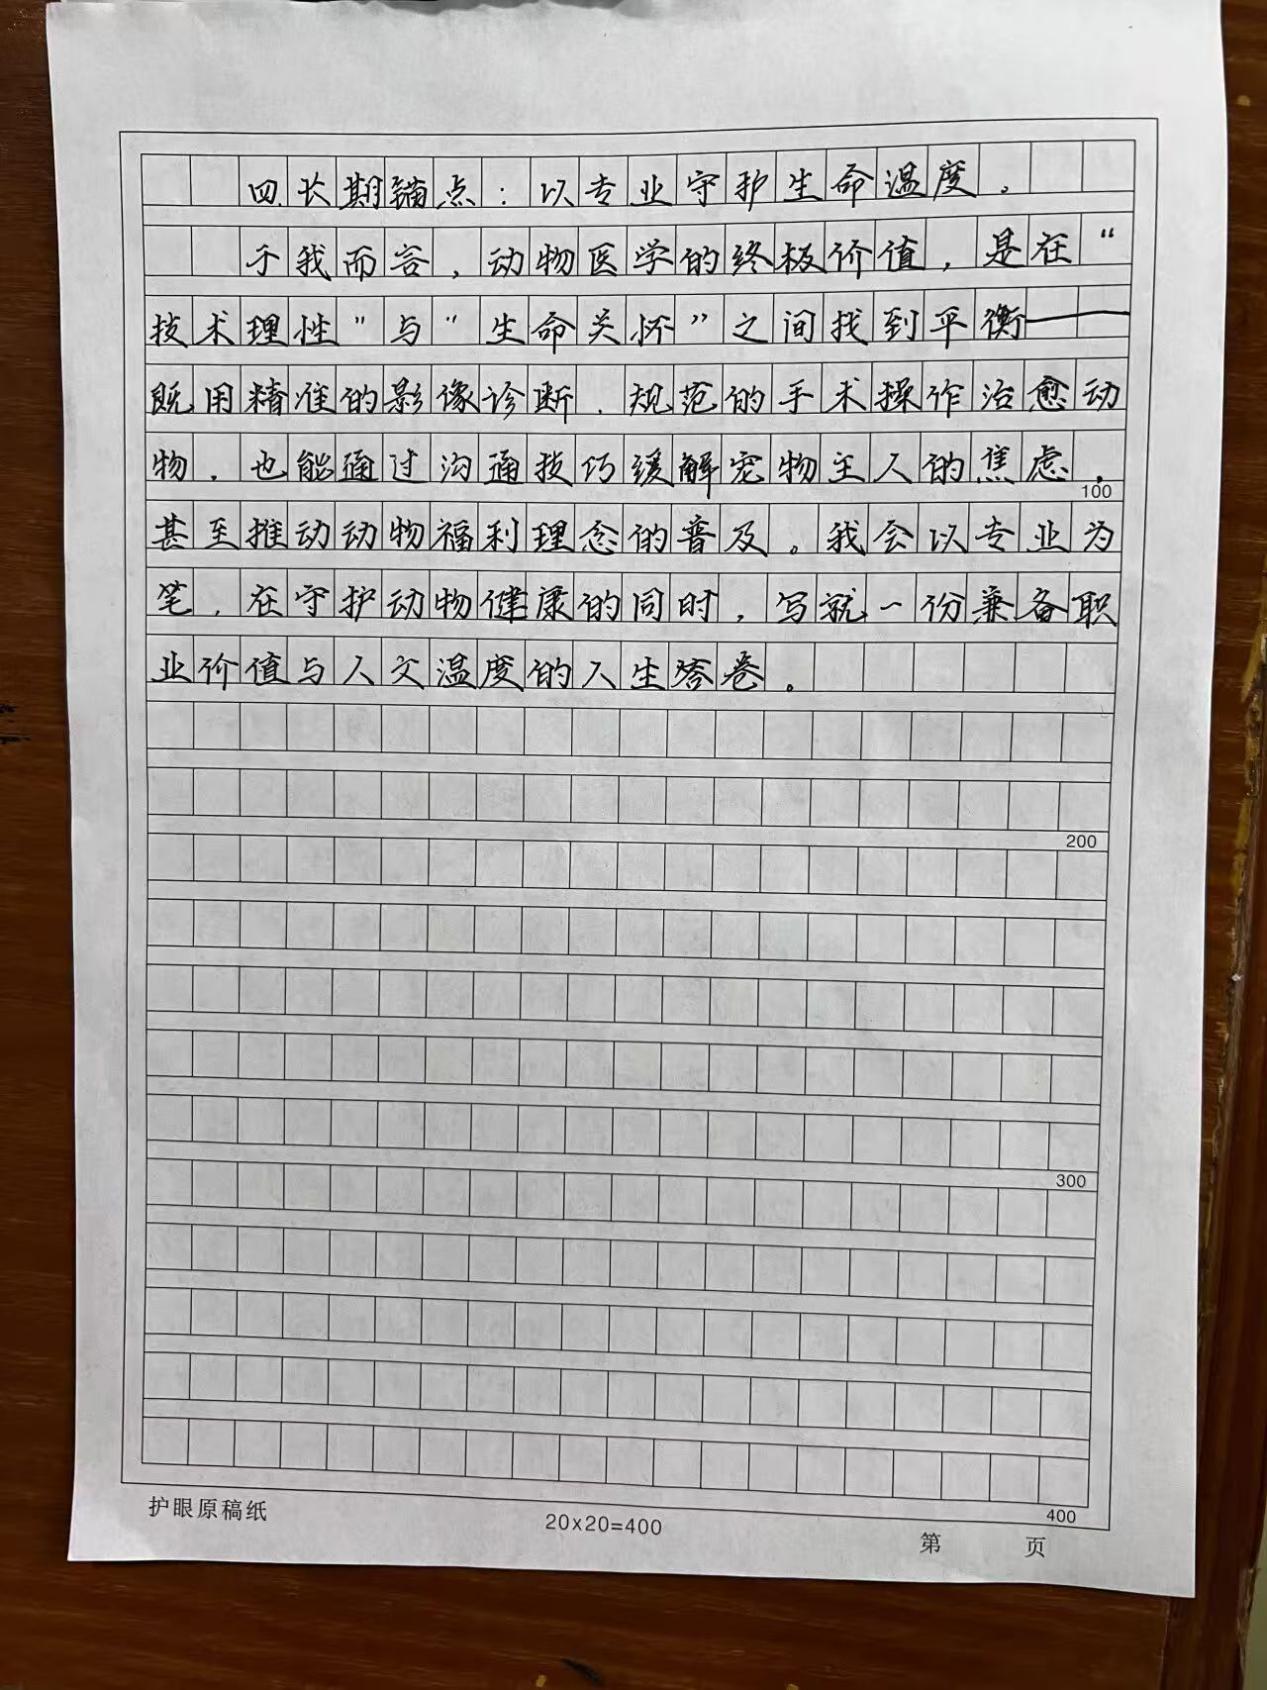 四.长期锚点：以专业守护生命温度。
于我而言，动物医学的终极价值，是在“
技术理性”与“生命关怀”之间找到平衡——
既用精准的影像诊断、规范的手术操作治愈动
物，也能通过沟通技巧缓解宠物主人的焦虑，
100
甚至推动动物福利理念的普及。我会以专业为
笔，在守护动物健康的同时，写就一份兼备职
业价值与人文温度的人生答卷。
200
300
400
护眼原稿纸 20x20=400 第 页